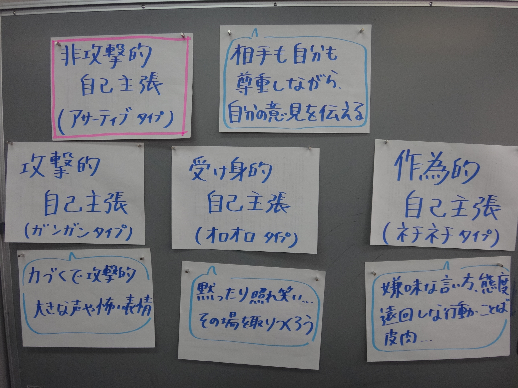 非攻撃的
自己主張
(アサーティブ タイプ)
相手も自分も
尊重しながら、
自分の意見を伝える
攻撃的
自己主張
(ガンガンタイプ)
受け身的
自己主張
(オロオロ タイプ)
作為的
自己主張
(ネチネチタイプ)
力づくで攻撃的
大きな声や怖い表情
黙ったり照れ笑い…
その場を取りつくろう
嫌味な言い方、態度
遠回しな行動かことば
皮肉…